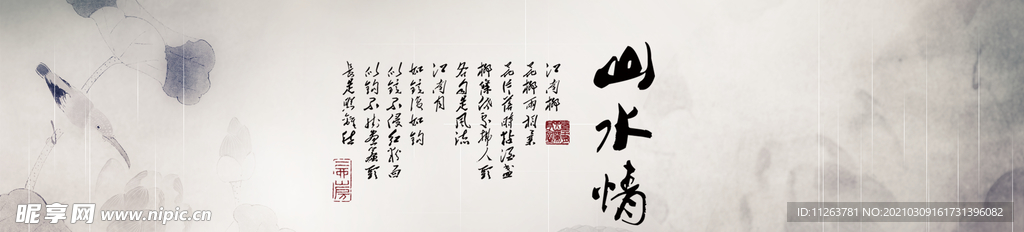 山水情
江南柳
花柳两相柔
花片落时黏酒盏
柳条低处拂人头
各自是风流
江南月
如镜复如钩
似镜不侵红粉面
似钩不挂画帘头
长是照离愁
昵享网 www.nipic.cn
ID:11263781 NO:20210309161731396082